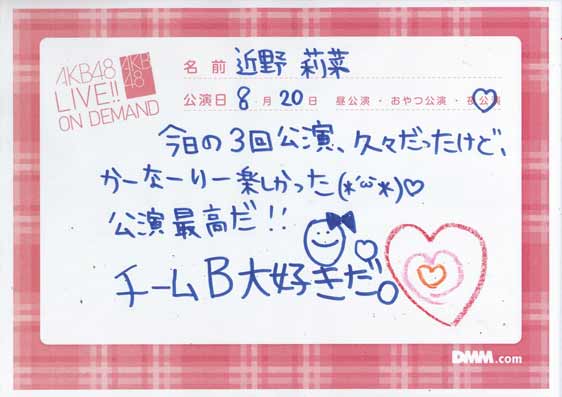 AKB48
LIVE!!
ON DEMAND
AKB
48
名前 近野 莉菜
公演日 8月20日 昼公演・おやつ公演・夜公演
今日の3回公演、久々だったけど、
かーなーりー楽しかった(*'ω'*)♡
公演最高だ!!
チームB大好きだ。
DMM.com